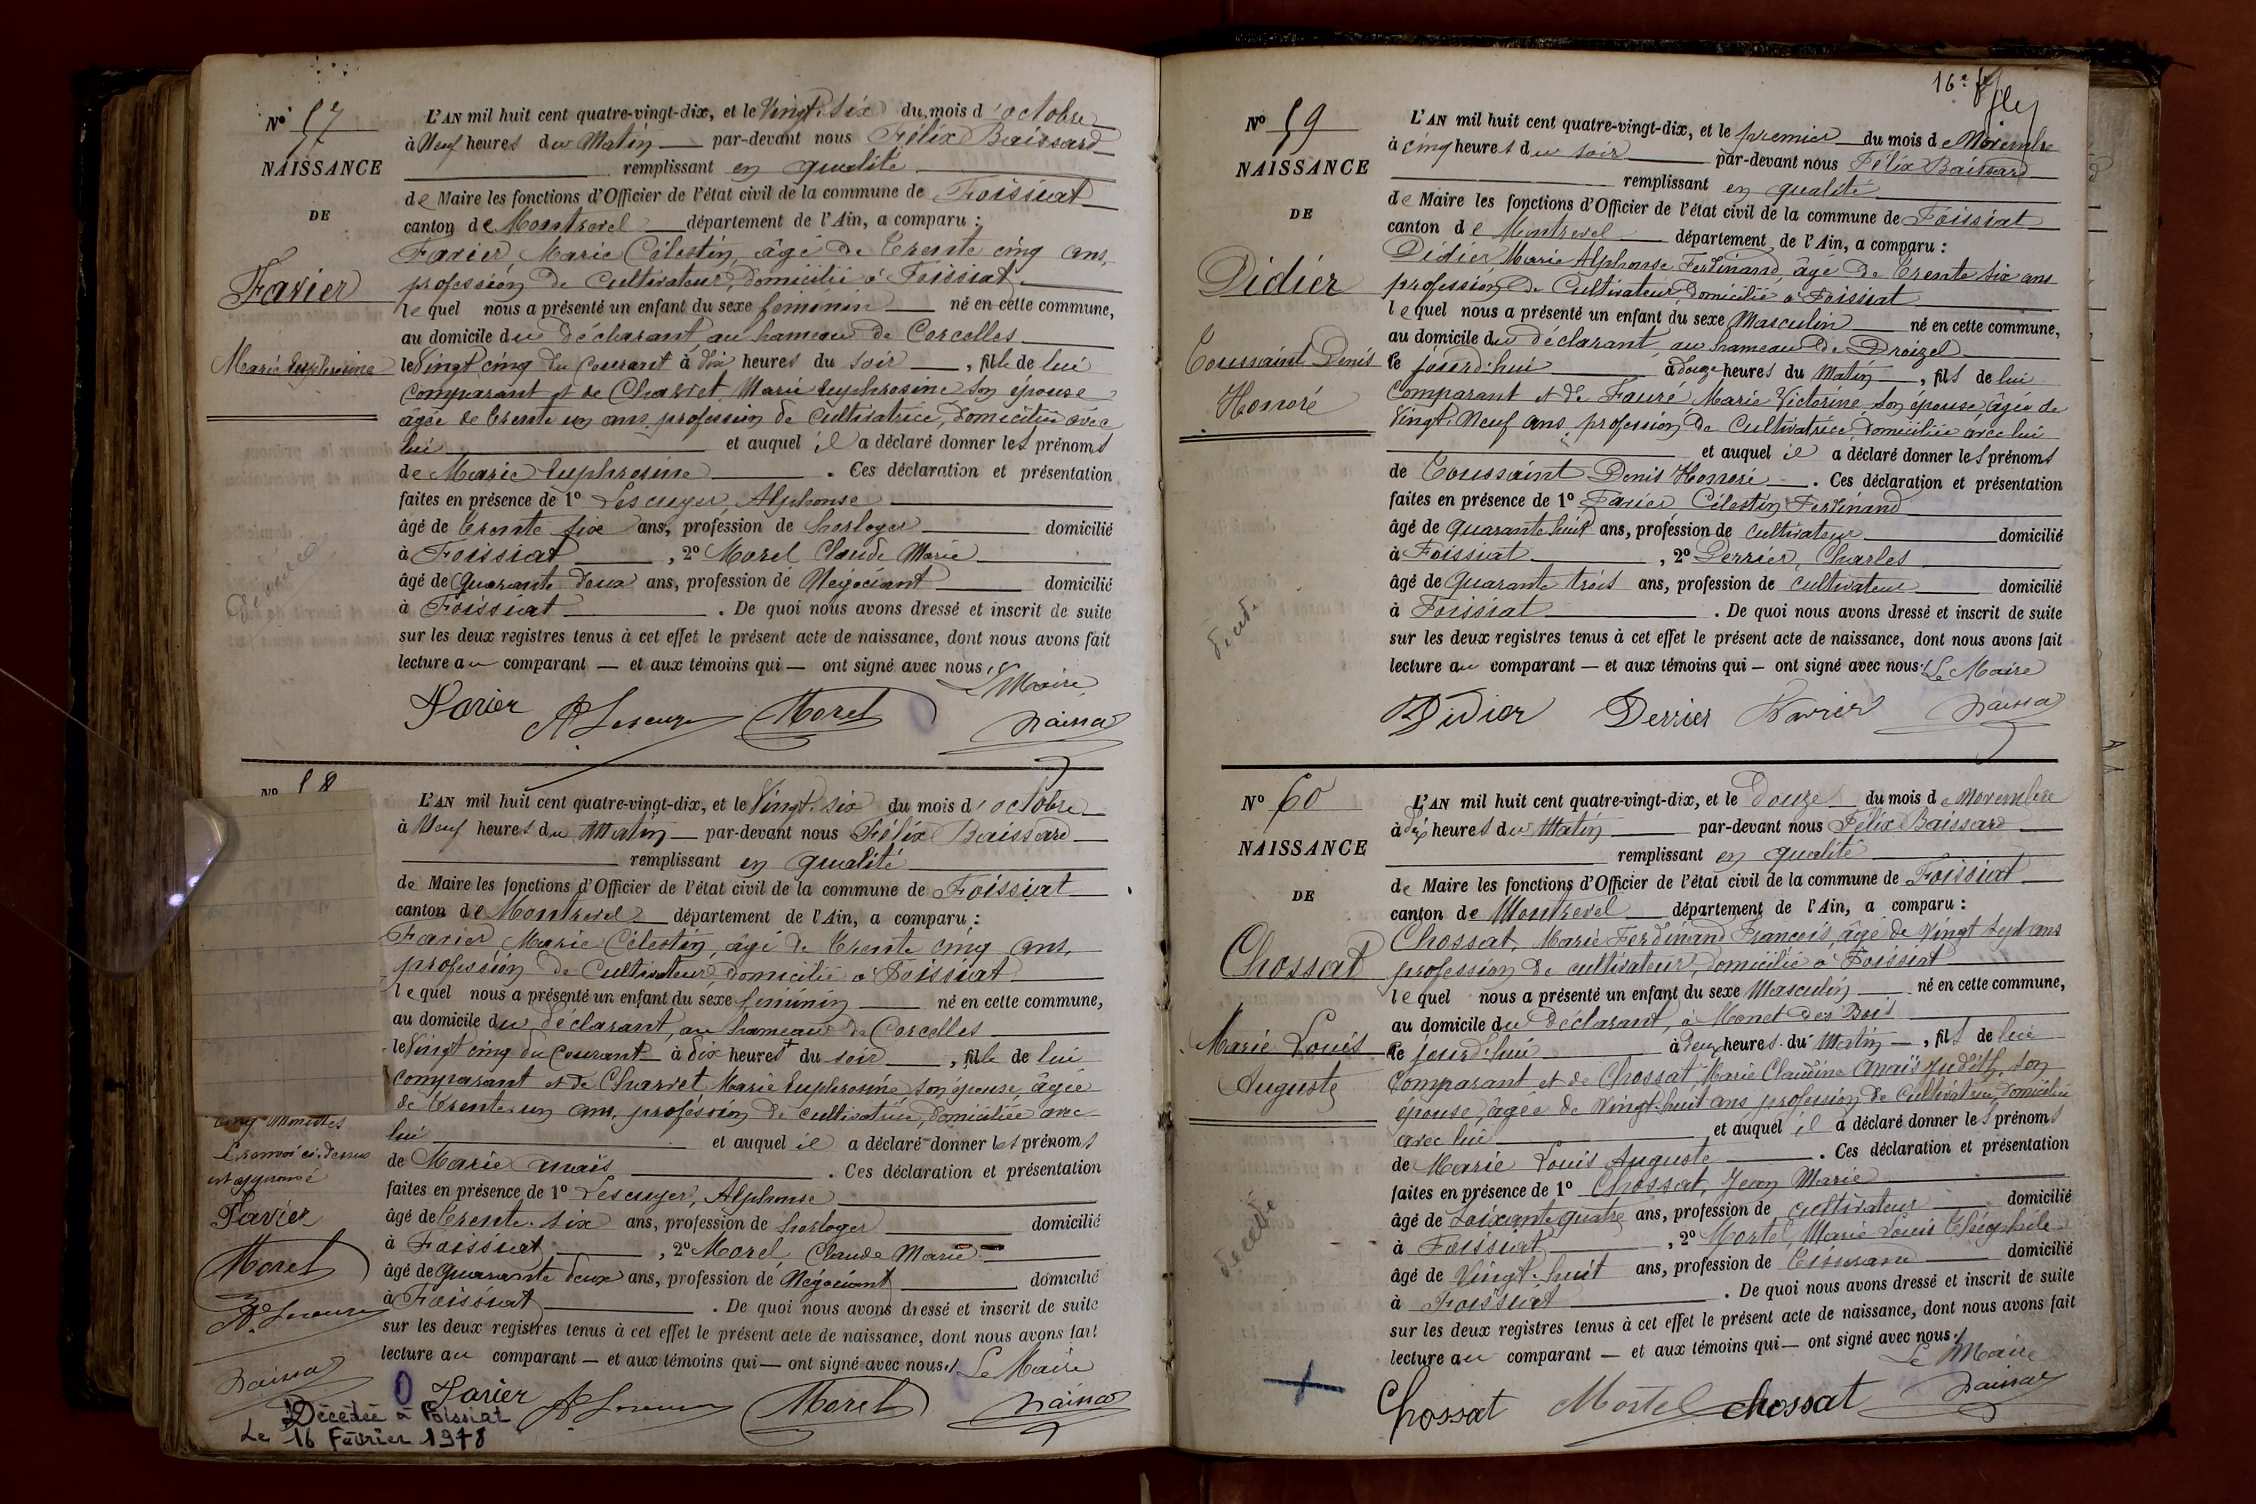 No 57
NAISSANCE
DE
Favier
Marie Euphrosine
L'AN mil huit cent quatre-vingt-dix, et le Vingt-six du mois d'octobre
à Neuf heures du Matin par-devant nous Félix Baissard
remplissant en qualité
de Maire les fonctions d'Officier de l'état civil de la commune de Foissiat
canton de Montrevel département de l'Ain, a comparu :
Favier Marie Célestin, âgé de trente cinq ans,
profession de cultivateur, domicilié à Foissiat
lequel nous a présenté un enfant du sexe feminin né en cette commune,
au domicile du déclarant, au hameau de Corcelles
le Vingt cinq du courant à dix heures du soir, fille de lui
comparant et de Charvet Marie Euphrosine son épouse
âgée de trente un ans, profession de cultivatrice, domiciliée avec
lui et auquel il a déclaré donner les prénoms
de Marie Euphrosine. Ces déclaration et présentation
faites en présence de 1o Lescuyer, Alphonse
âgé de trente six ans, profession de horloger domicilié
à Foissiat, 2o Morel Claude Marie
âgé de quarante deux ans, profession de Négociant domicilié
à Foissiat. De quoi nous avons dressé et inscrit de suite
sur les deux registres tenus à cet effet le présent acte de naissance, dont nous avons fait
lecture au comparant — et aux témoins qui — ont signé avec nous.
Le Maire
Favier A Lescuyer Morel Baissard
No 58
L'AN mil huit cent quatre-vingt-dix, et le Vingt-six du mois d'octobre
à Neuf heures du Matin par-devant nous Félix Baissard
remplissant en qualité
de Maire les fonctions d'Officier de l'état civil de la commune de Foissiat
canton de Montrevel département de l'Ain, a comparu :
Favier Marie Célestin, âgé de trente cinq ans,
profession de cultivateur, domicilié à Foissiat
lequel nous a présenté un enfant du sexe feminin né en cette commune,
au domicile du déclarant, au hameau de Corcelles
le Vingt cinq du courant à dix heures + du soir, fille de lui
comparant et de Charvet Marie Euphrosine son épouse, âgée
de trente un ans, profession de cultivatrice, domiciliée avec
lui et auquel il a déclaré donner les prénoms
de Marie Anaïs. Ces déclaration et présentation
faites en présence de 1o Lescuyer, Alphonse
âgé de trente-six ans, profession de horloger domicilié
à Foissiat, 2o Morel Claude Marie
âgé de quarante deux ans, profession de Négociant domicilié
à Foissiat. De quoi nous avons dressé et inscrit de suite
sur les deux registres tenus à cet effet le présent acte de naissance, dont nous avons fait
lecture au comparant — et aux témoins qui — ont signé avec nous. Le Maire
Favier A Lescuyer Morel Baissard
cinq minutes
Le renvoi ci-dessus
est approuvé
Favier
Morel
A. Lescuyer
Baissard
Décédée à Foissiat
Le 16 Février 1978
16e
No 59
NAISSANCE
DE
Didier
Toussaint Denis
Honoré
L'AN mil huit cent quatre-vingt-dix, et le premier du mois de Novembre
à cinq heures du soir par-devant nous Félix Baissard
remplissant en qualité
de Maire les fonctions d'Officier de l'état civil de la commune de Foissiat
canton de Montrevel département de l'Ain, a comparu :
Didier Marie Alphonse Ferdinand, âgé de trente six ans
profession de cultivateur, domicilié à Foissiat
lequel nous a présenté un enfant du sexe Masculin né en cette commune,
au domicile du déclarant, au hameau de Droizel
le jourd'hui à douze heures du Matin, fils de lui
comparant et de Fauré Marie Victorine son épouse, âgée de
Vingt-Neuf ans profession de cultivatrice, domiciliée avec lui
et auquel il a déclaré donner les prénoms
de Toussaint Denis Honoré. Ces déclaration et présentation
faites en présence de 1o Favier Célestin Ferdinand
âgé de quarante huit ans, profession de cultivateur domicilié
à Foissiat, 2o Derrier, Charles
âgé de quarante trois ans, profession de cultivateur domicilié
à Foissiat. De quoi nous avons dressé et inscrit de suite
sur les deux registres tenus à cet effet le présent acte de naissance, dont nous avons fait
lecture au comparant — et aux témoins qui — ont signé avec nous. Le Maire
Didier Derrier Favier Baissard
No 60
NAISSANCE
DE
Chossat
Marie Louis
Auguste
décédé
L'AN mil huit cent quatre-vingt-dix, et le Douze du mois de Novembre
à dix heures du Matin par-devant nous Félix Baissard
remplissant en qualité
de Maire les fonctions d'Officier de l'état civil de la commune de Foissiat
canton de Montrevel département de l'Ain, a comparu :
Chossat, Marie Ferdinand François, âgé de Vingt sept ans
profession de cultivateur, domicilié à Foissiat
lequel nous a présenté un enfant du sexe Masculin né en cette commune,
au domicile du déclarant, à Monet des Bois
le jourd'hui à deux heures du Matin, fils de lui
comparant et de Chossat, Marie Claudine Anaïs Judith, son
épouse, âgée de vingt-huit ans profession de cultivatrice, domiciliée
avec lui et auquel il a déclaré donner les prénoms
de Marie Louis Auguste. Ces déclaration et présentation
faites en présence de 1o Chossat, Jean Marie
âgé de soixante quatre ans, profession de cultivateur domicilié
à Foissiat, 2o Mortel, Marie Louis Théophile
âgé de Vingt-huit ans, profession de Tisserand domicilié
à Foissiat. De quoi nous avons dressé et inscrit de suite
sur les deux registres tenus à cet effet le présent acte de naissance, dont nous avons fait
lecture au comparant — et aux témoins qui — ont signé avec nous.
Le Maire
Chossat Mortel Chossat Baissard